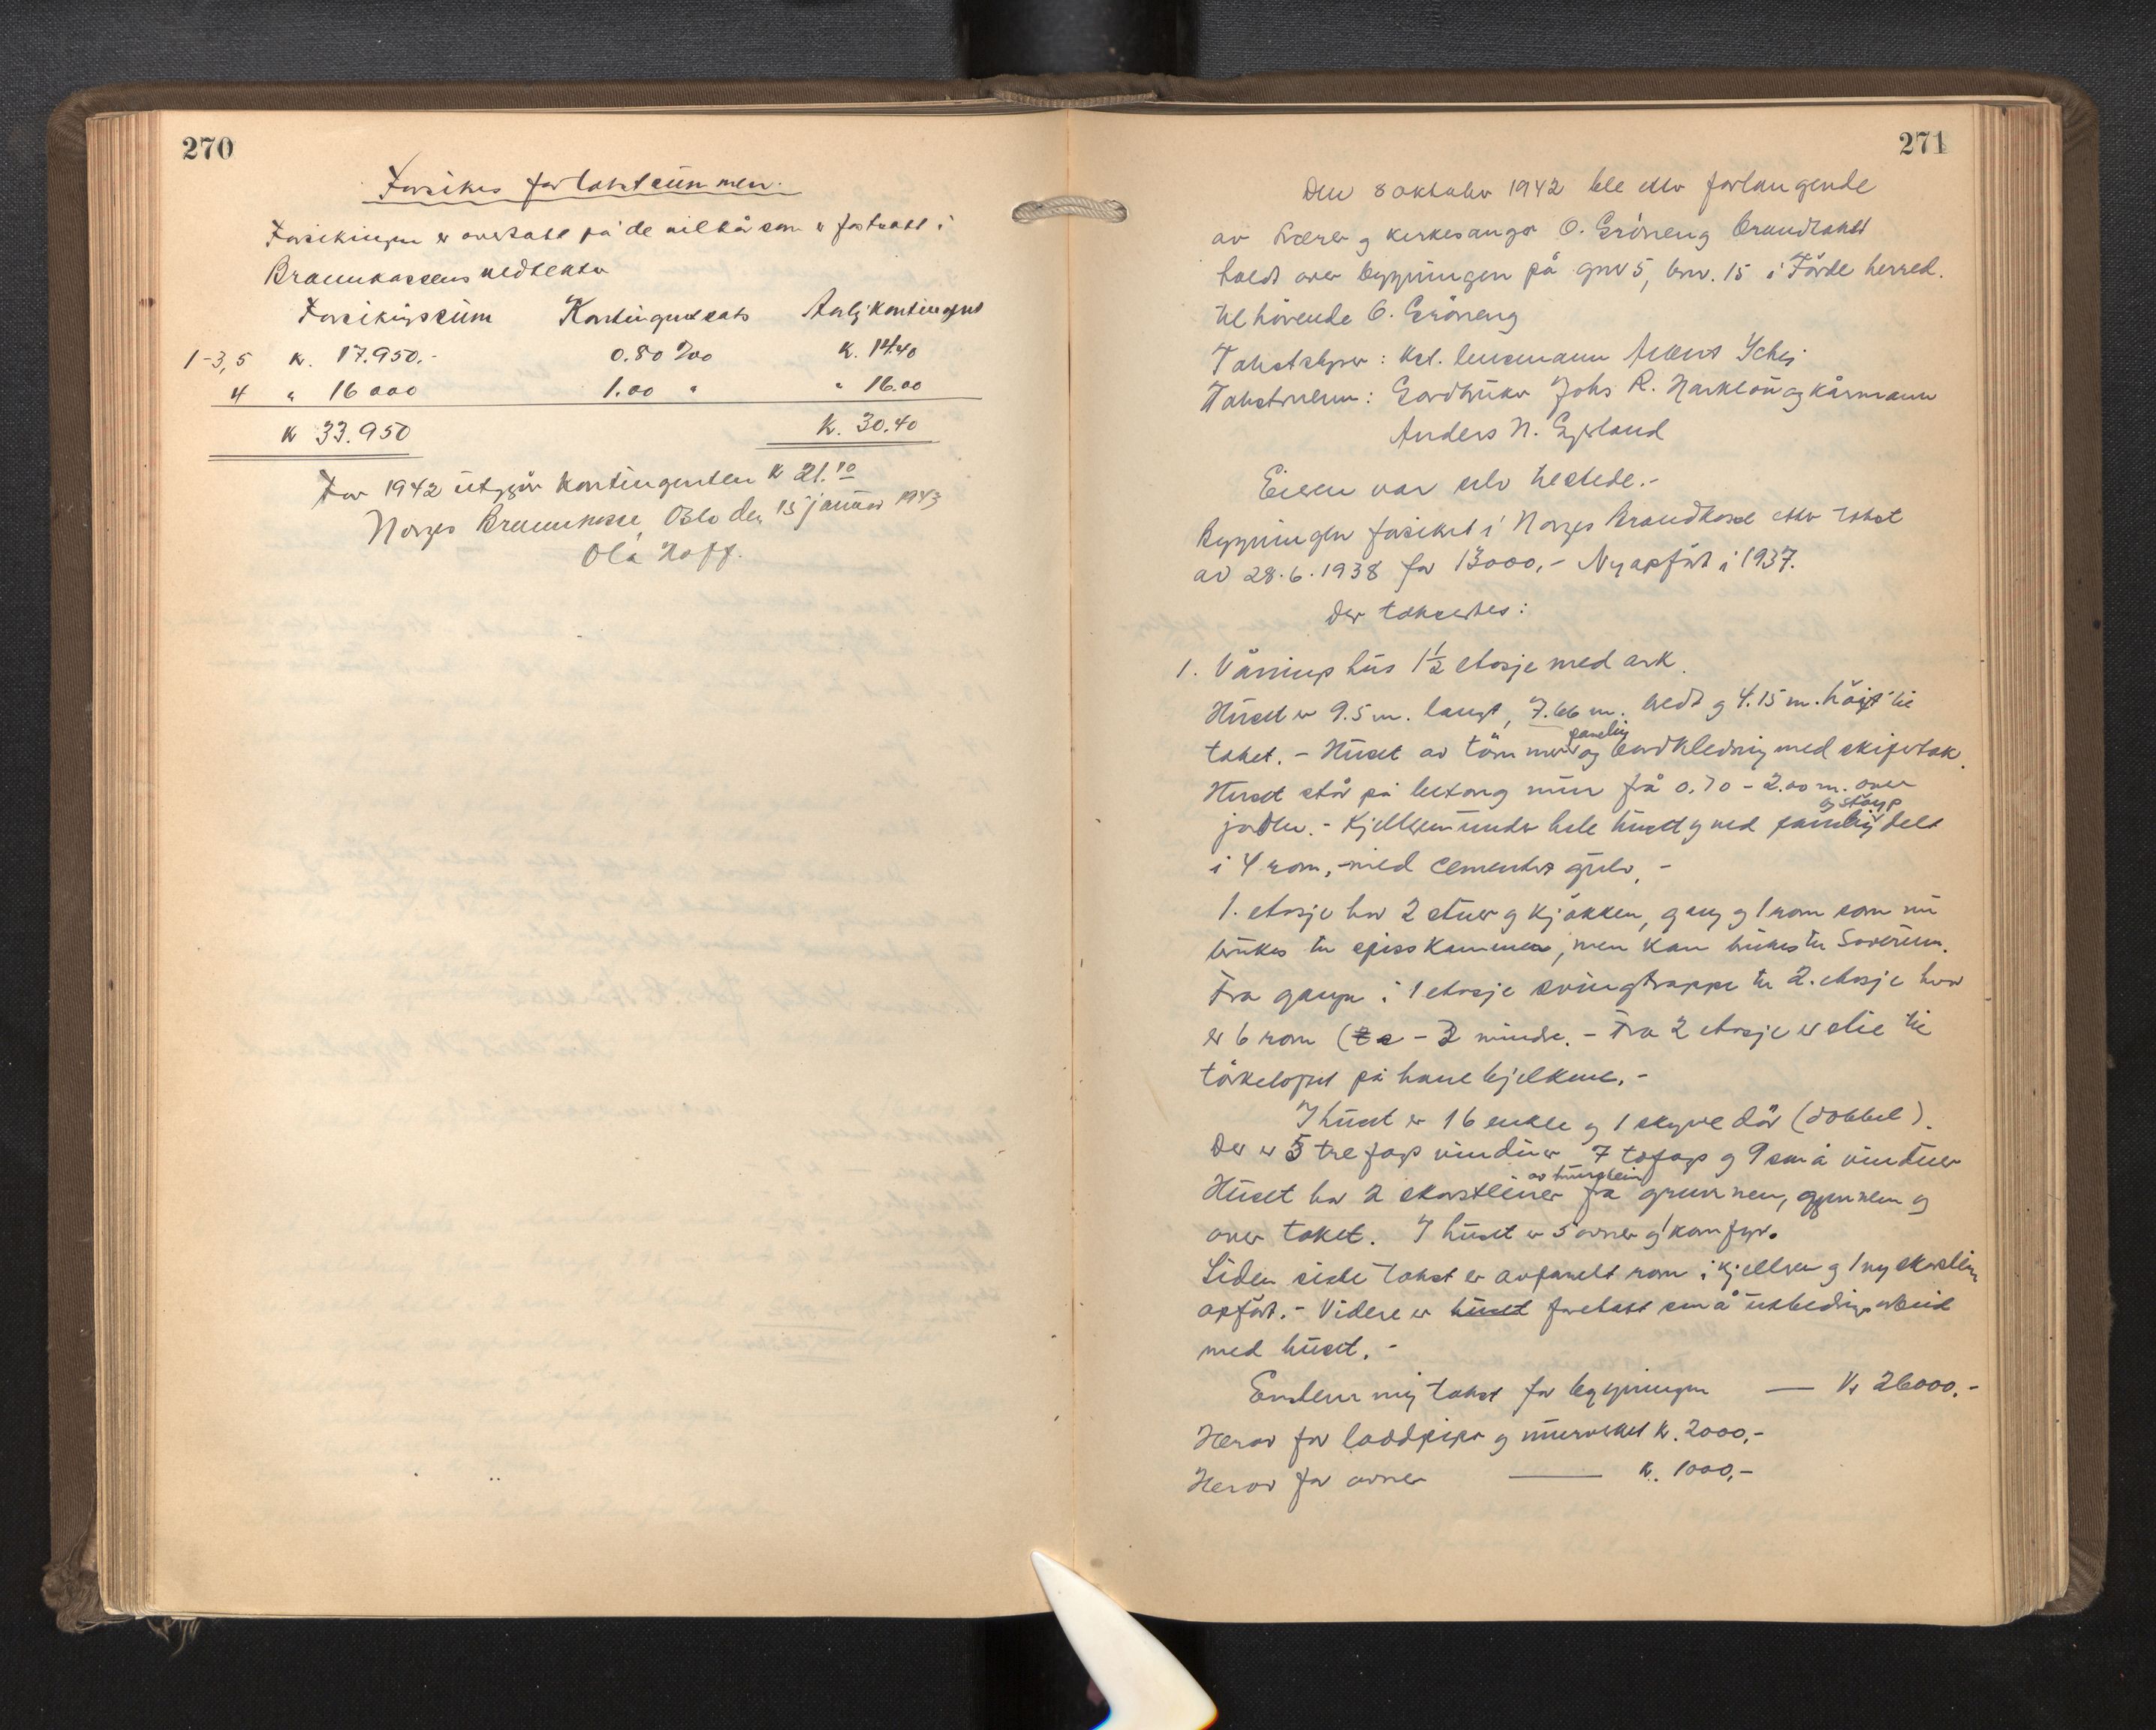 270
Forsikres for takstsummen.
Forsikringen er overtatt på de vilkår som er fastsatt i
Brannkassens vedtekter
Forsikringssum Kontingentsats Aarlig kontingent
1-3,5 k. 17.950.- 0.80 ‰ k. 14.40
4 " 16 000 1.00 " " 16.00
k 33.950 k. 30.40
For 1942 utgjør kontingenten k 21.10
Norges Brannkasse, Oslo den 15 januar 1943
Ola Hoff.
271
Den 8 oktober 1942 ble etter forlangende
av lærer og kirkesanger O. Grøneng brandtakst
holdt over bygningen på gnr 5, bnr. 15 i Førde herred.
tilhørende O. Grøneng
Takstbestyrer: kst. lensmann
Takstmenn: Gardbruker Johs R. Hafstad og kårmann
Anders N.
Eieren var selv tilstede.-
Bygningen forsikret i Norges Brandkasse etter takst
av 28.6.1938 for 13000,- Ny opført i 1937.
Der takseres:
1. Våningshus 1½ etasje med ark.
Huset er 9.5 m. langt, 7.66 m. bredt og 4.15 m. høigt til
taket. - Huset av tømmer panelig og bordkledning med skifertak.
Huset står på betong mur frå 0.70 - 2.00 m. over
jorden. - Kjelleren under hele huset og ved paneling og støyp delt
i 4 rom, med cementert gulv, -
1. etasje har 2 stuer og kjøkken, gang og 1 rom som nu
brukes til spisskammer, men kan brukes til Soverum.
Fra gangen i 1 etasje svingtrappe til 2. etasje hvor
er 6 rom ( - 3 mindre. - Fra 2 etasje er stie til
tørkeloftet på hanebjelkene. -
I huset er 16 enkle og 1 skyvedør (dobbel).
Der er 5 tre fags vinduer 7 tofags og 9 små vinduer
Huset har 2 skorsteiner av murstein fra grunnen, gjennem og
over taket. I huset er 5 ovner og 1 komfyr.
Siden siste takst er avpanelt rom i kjelleren og 1 ny skorstein
opført. - Videre er huset foretatt små utbedrings arbeid
med huset. -
Enstemmig takst for bygningen — Kr 26000.-
Herav for loddpiper og murverket k. 2000,-
Herav for ovner — k. 1000,-